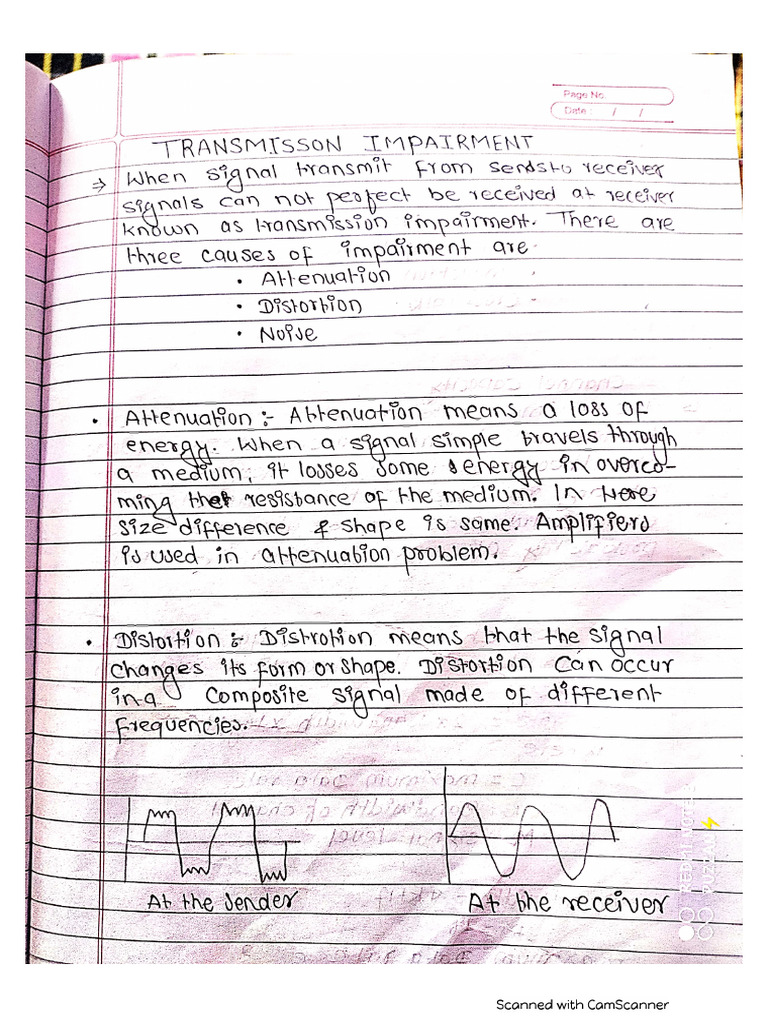 Page No.
Date : / /
TRANSMISSON IMPAIRMENT
⇒ When signal transmit from sends to receiver
signals can not perfect be received at receiver
known as transmission impairment. There are
three causes of impairment are.
• Attenuation
• Distortion
• Noise
• Attenuation :- Attenuation means a loss of
energy. When a signal simple travels through
a medium, it losses some energy in overco-
ming the resistance of the medium. In Here
size difference & shape is same. Amplifiers
is used in attenuation problem.
• Distortion :- Distrotion means that the signal
changes its form or shape. Distortion can occur
in a composite signal made of different
frequencies.
At the sender
At the receiver
REDMI NOTE 8
Scanned with CamScanner